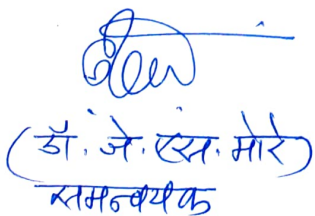 (डॉ. जे. एस. मोरे)
समन्वयक